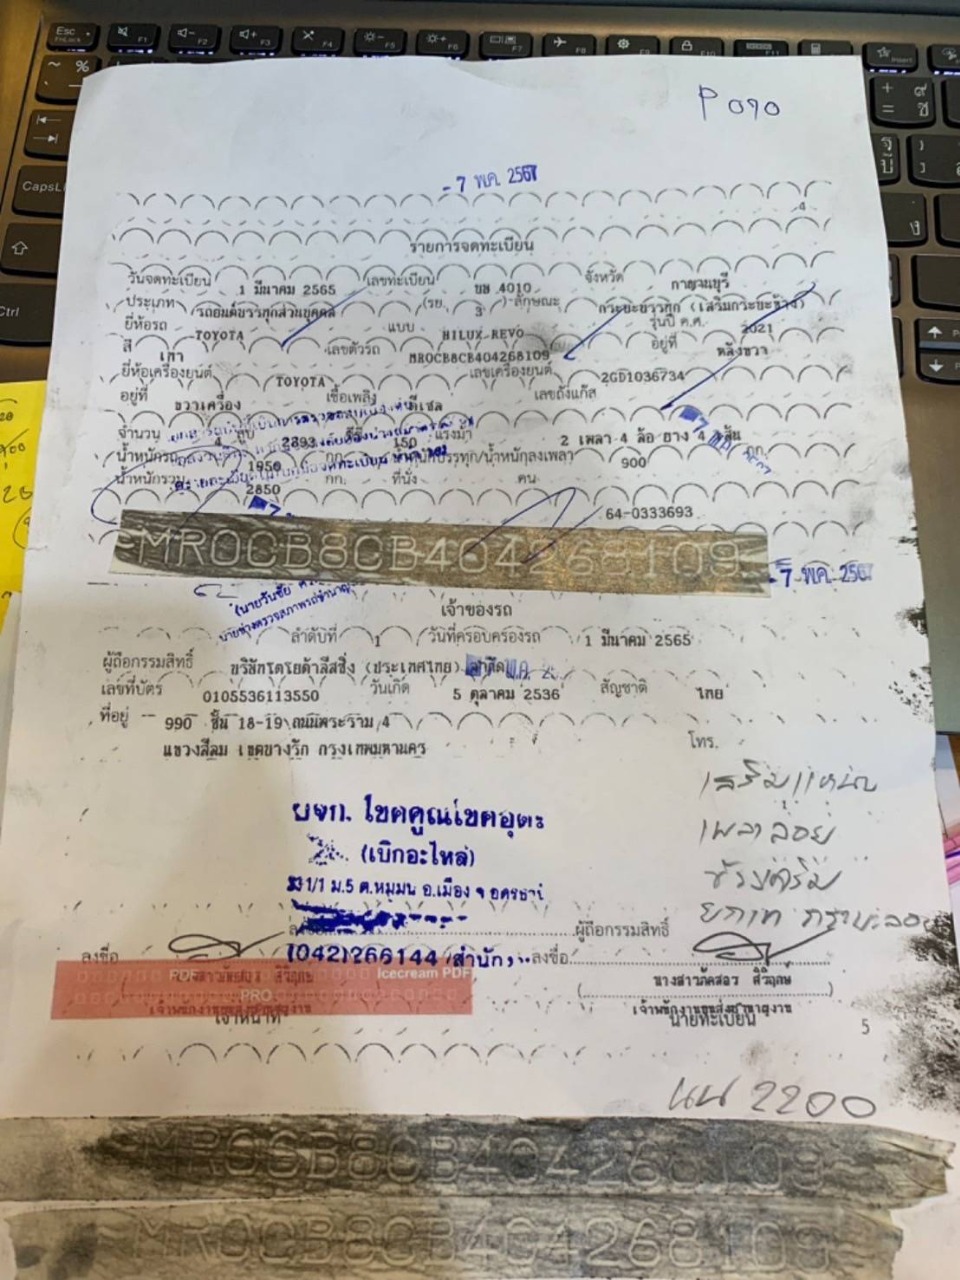 P 090
- 7 พ.ค. 2567
4
รายการจดทะเบียน
วันจดทะเบียน 1 มีนาคม 2565 เลขทะเบียน 4010 จังหวัด กาญจนบุรี
ประเภท รถยนต์บรรทุกส่วนบุคคล (รย. 3 ) ลักษณะ กระบะบรรทุก (เสริมกระบะข้าง)
ยี่ห้อรถ TOYOTA แบบ HILUX REVO รุ่นปี ค.ศ. 2021
สี เทา เลขตัวรถ MR0CB8CB404268109 อยู่ที่ หลังขวา
ยี่ห้อเครื่องยนต์ TOYOTA เลขเครื่องยนต์ 2GD1036734
อยู่ที่ ขวาเครื่อง เชื้อเพลิง ดีเซล เลขถังแก๊ส
จำนวน 4 สูบ 2393 ซีซี 150 แรงม้า 2 เพลา 4 ล้อ ยาง 4 เส้น
น้ำหนักรถ 1950 กก. น้ำหนักบรรทุก/น้ำหนักลงเพลา 900 กก.
น้ำหนักรวม 2850 กก. ที่นั่ง คน
64-0333693
MR0CB8CB404268109
- 7 พ.ค. 2567
(นายวันชัย
นายช่างตรวจสภาพรถชำนาญ
เจ้าของรถ
ลำดับที่ 1 วันที่ครอบครองรถ 1 มีนาคม 2565
ผู้ถือกรรมสิทธิ์ บริษัทโตโยต้าลีสซิ่ง (ประเทศไทย) จำกัด
เลขที่บัตร 0105536113550 วันเกิด 5 ตุลาคม 2536 สัญชาติ ไทย
ที่อยู่ 990 ชั้น 18-19 ถนนพระราม 4
แขวงสีลม เขตบางรัก กรุงเทพมหานคร โทร.
เสริมแหนบ
เพลาลอย
บจก. โชคคูณโชคอุดร
(เบิกอะไหล่)
1/1 ม.5 ต.หมูม่น อ.เมือง จ.อุดรธานี
ผู้ถือกรรมสิทธิ์
(042)266144 (สำนัก)
ลงชื่อ ลงชื่อ
นางสาวภัคสอร สิริฤกษ์
PDF Icecream PDF
PRO
เจ้าพนักงานขนส่งชำนาญงาน
เจ้าหน้าที่ นายทะเบียน
5
นน 2200
MR0CB8CB404268109
MR0CB8CB404268109